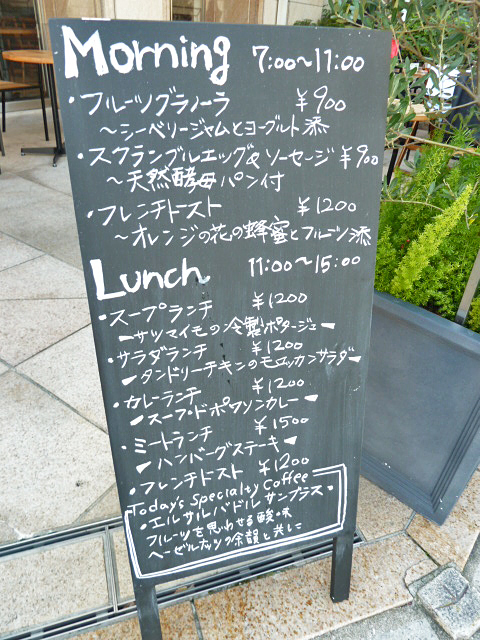 Morning 7:00~11:00
・フルーツグラノーラ ¥900
~シーベリージャムとヨーグルト添
・スクランブルエッグ&ソーセージ ¥900
~天然酵母パン付
・フレンチトースト ¥1200
~オレンジの花の蜂蜜とフルーツ添
Lunch 11:00~15:00
・スープランチ ¥1200
サツマイモの冷製ポタージュ
・サラダランチ ¥1200
タンドリーチキンのモロッカンサラダ
・カレーランチ ¥1200
スープ・ド・ポワソンカレー
・ミートランチ ¥1500
ハンバーグステーキ
・フレンチトースト ¥1200
Today's Specialty Coffee
・エルサルバドル サンブラス・
フルーツを思わせる酸味
ヘーゼルナッツの余韻と共に